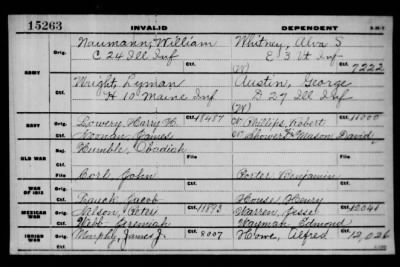 15263 INVALID DEPENDENT 3-16-9
ARMY
Orig. Naumann, William Whitney, Alva S
C 24 Ill Inf E 3 Vt Inf
Ctf. (W) Ctf. 7222
Orig. Wright, Lyman Austin, George
H 10 Maine Inf D 27 Ill Inf
(W)
NAVY Orig. Lowery, Harry H. Ctf. 18487 Phillips, Robert Ctf. 11000
Noonan, James Mason David
OLD WAR Rej. Humble, Obadiah
File File
WAR OF 1812 Cort, John Porter Benjamin
Jacob House Henry
MEXICAN WAR Orig. Nelson, Peter Ctf. 11893 Warren, Jesse Ctf. 12048
Webb Jeremiah Wayman Edmond
INDIAN WAR Orig. Murphy, James J. Ctf. 8007 Howe, Alfred Ctf. 12,026